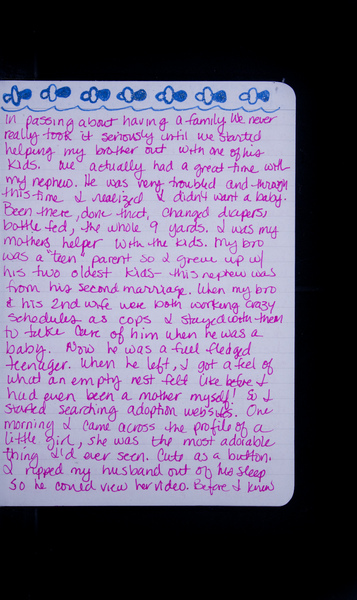 In passing about having a family we never
really took it seriously until we started
helping my brother out with one of his
kids. We actually had a great time with
my nephew. He was very troubled and through
this time I realized I didn't want a baby.
Been there, done that, changed diapers,
bottle fed, the whole 9 yards. I was my
mothers helper with the kids. My bro
was a "teen" parent so I grew up w/
his two oldest kids- this nephew was
from his second marriage. When my bro
& his 2nd wife were both working crazy
schedules as cops I stayed with them
to take care of him when he was a
baby. Now he was a full fledged
teenager. When he left, I got a feel of
what an empty nest felt like before I
had even been a mother myself! So I
started searching adoption websites. One
morning I came across the profile of a
little girl, she was the most adorable
thing I'd ever seen. Cute as a button.
I ripped my husband out of his sleep
so he could view her video. Before I knew